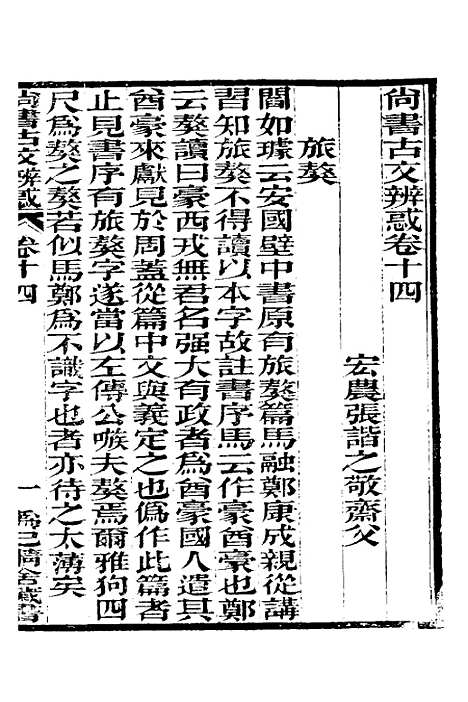 尚書古文辨惑卷十四
宏農張諧之敬齋父
旅獒
閻如璩云安國壁中書原有旅獒篇馬融鄭康成親從講
習知旅獒不得讀以本字故註書序馬云作豪酋豪也鄭
云獒讀曰豪西戎無君名强大有政者為酋豪國人遣其
酋豪來獻見於周蓋從篇中文與義定之也偽作此篇者
止見書序有旅獒字遂當以左傳公嗾夫獒焉爾雅狗四
尺為獒之獒若似馬鄭為不識字也者亦待之太薄矣
尚書古文辨惑 卷十四 一 為己精舍藏書